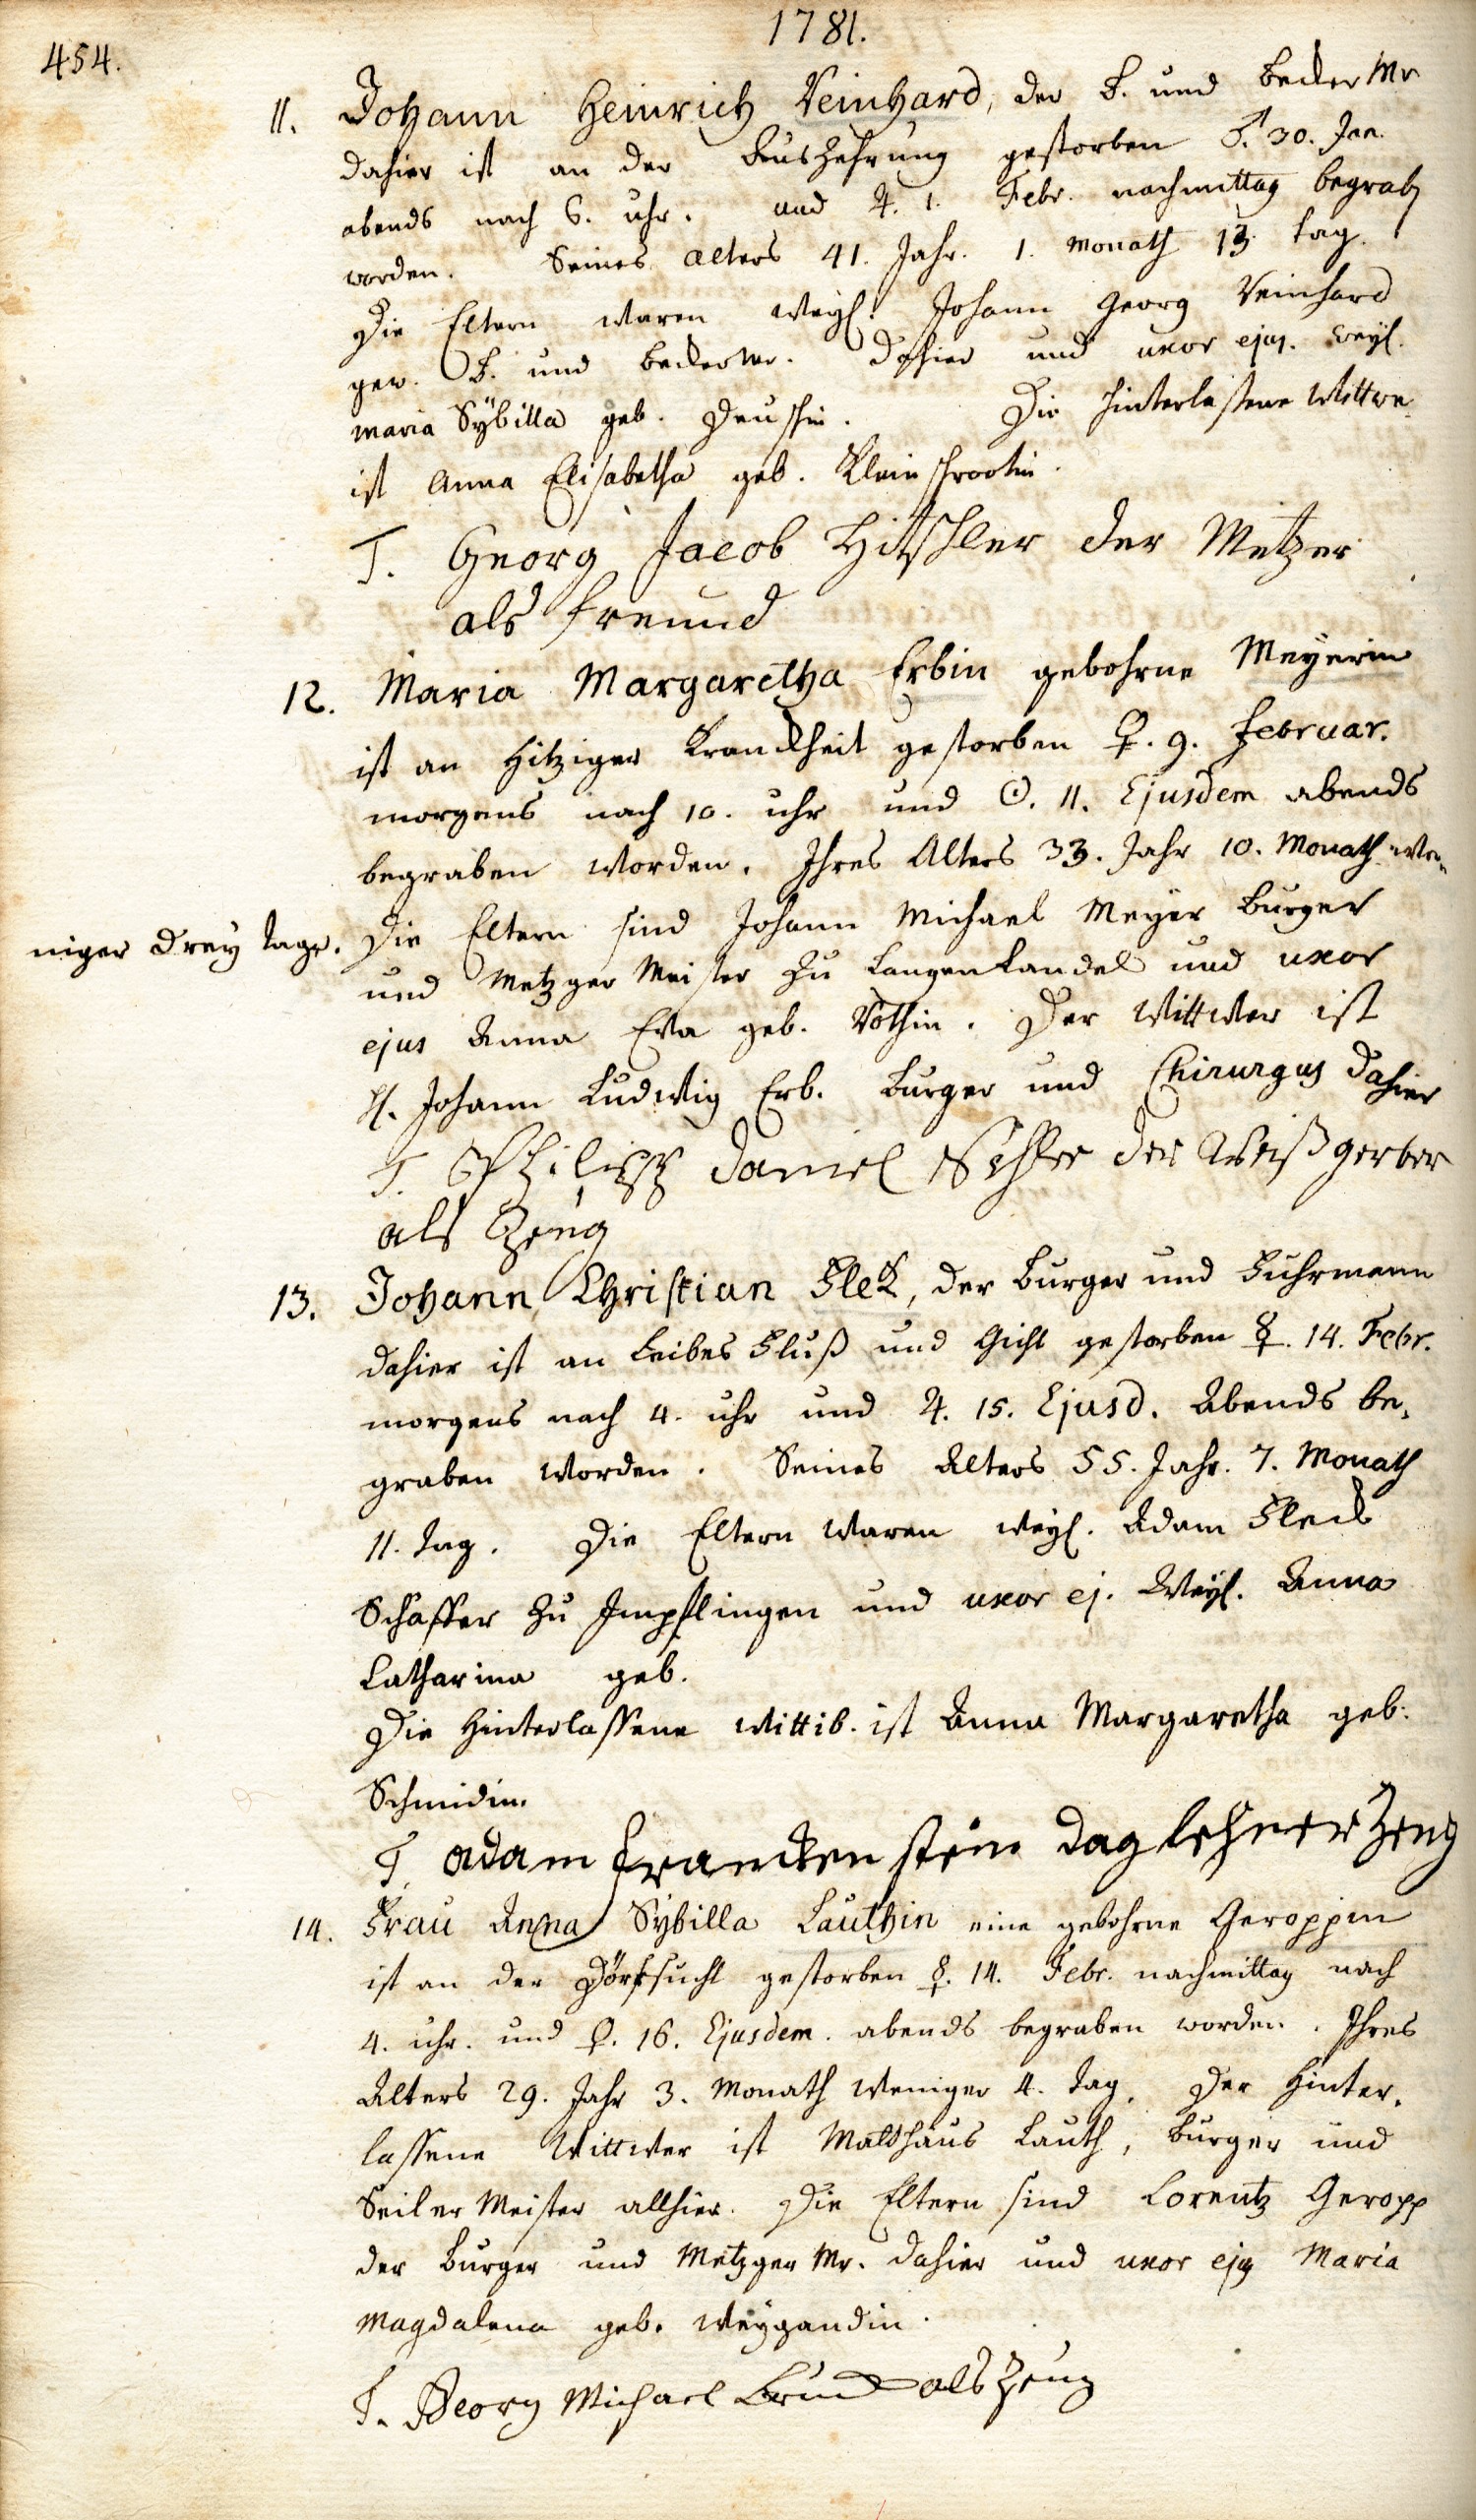 454.
1781.
11. Johann Heinrich Reinhard, der B. und Becker Mr
dahier ist an der Auszehrung gestorben ♂. 30. Jan.
abends nach 6. uhr. und ♃. 1. Febr. nachmittag begrab
worden. Seines alters 41. Jahr. 1. Monath 13. tag.
Die Eltern waren weyl. Johann Georg Reinhard
gew. B. und beckermr. dahier und uxor ejus. weyl.
maria Sÿbilla geb. Die hinterlaßene Wittwe
ist Anna Elisabetha geb. Kleinschrootin.
T. Georg Jacob Hitschler der Metzer
als freund
12. Maria Margaretha Erbin gebohrne Meÿerin
ist an hitziger Kranckheit gestorben ♀. 9. Februar.
morgens nach 10. uhr und ☉. 11. Ejusdem abends
begraben worden. Ihres Alters 33. Jahr 10. Monath we-
niger dreÿ tage. Die Eltern sind Johann Michael Meÿer burger
und Metzger Meister zu Langenkandel und uxor
ejus Anna Eva geb. Rothin. Der Wittwer ist
H. Johann Ludwig Erb. burger und Chirurgus dahier
T. Philipp Daniel der Weißgerber
als Zeug
13. Johann Christian Flek, der burger und Fuhrmann
dahier ist an Leibes Fluß und Gicht gestorben ☿. 14. Febr.
morgens nach 4. uhr und ♃. 15. Ejusd. Abends be-
graben worden. Seines Alters 55. Jahr. 7. Monath
11. tag. Die Eltern waren weyl. Adam Fleck
Schaffer zu Impflingen und uxor ej. Weyl. Anna
Catharina geb.
Die hinterlassene Wittib. ist Anna Margaretha geb.
Schmidin.
T. adam franckenstein dag lehner zeug
14. Frau Anna Sÿbilla Lauthin eine gebohrne Geroppin
ist an der Dörrsucht gestorben ☿. 14. Febr. nachmittag nach
4. uhr. und ♀. 16. Ejusdem. abends begraben worden. Ihres
Alters 29. Jahr 3. Monath weniger 4. tag. Der hinter-
lassene Wittwer ist Matthäus Lauth, burger und
Seiler Meister allhier. Die Eltern sind Lorentz Geropp
der burger und Metzger Mr. dahier und uxor ejus Maria
Magdalena geb. Weÿgandin.
T. Georg Michael als Zeug